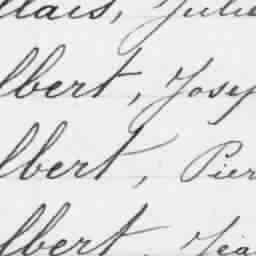 llais, Julie
lbert, Josep
lbert, Pier
lbert, Jea